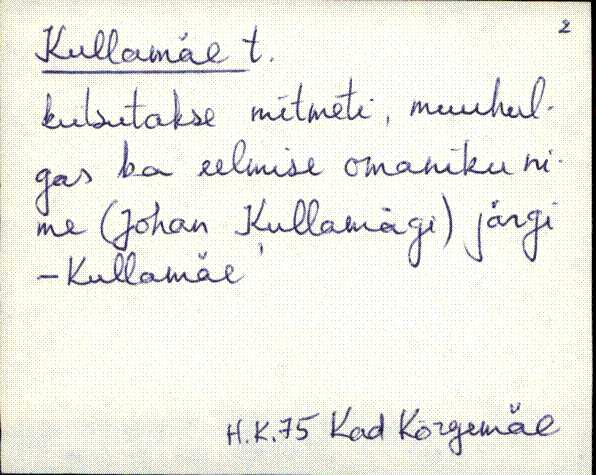 2
Kullamäe t.
kutsutakse mitmeti, muuhul-
gas ka eelmise omaniku ni-
me (Johan Kullamägi) järgi
- Kullamäe
H.K.75 Kad Kõrgemäe